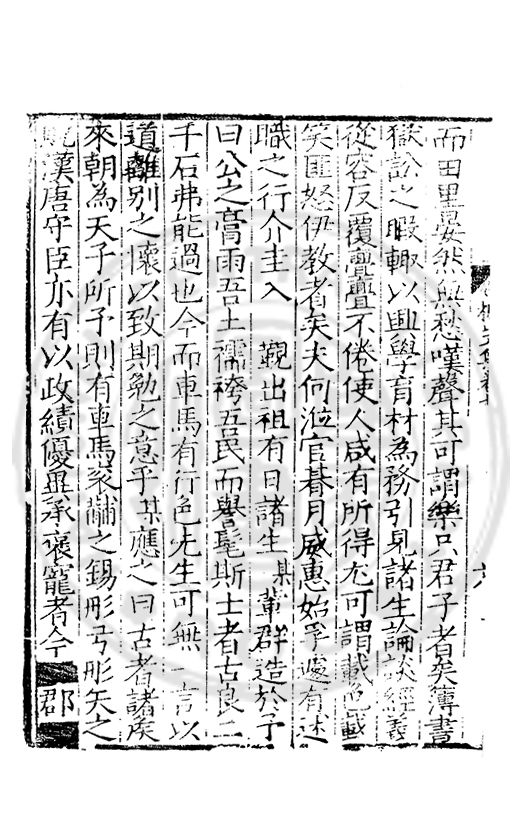 而田里晏然無愁嘆聲其可謂樂只君子者矣簿書
獄訟之暇輙以興學育材為務引見諸生論談經義
從容反覆亹亹不倦使人咸有所得尤可謂載色載
笑匪怒伊教者矣夫何涖官朞月威惠始孚遽有述
職之行介圭入覲出祖有日諸生某輩群造於予
曰公之膏雨吾土襦袴吾民而譽髦斯士者古良二
千石弗能過也今而車馬有行色先生可無一言以
道離別之懷以致期勉之意乎某應之曰古者諸侯
來朝為天子所予則有車馬衮黼之錫彤弓彤矢之
漢唐守臣亦有以政績優異承褒寵者今郡